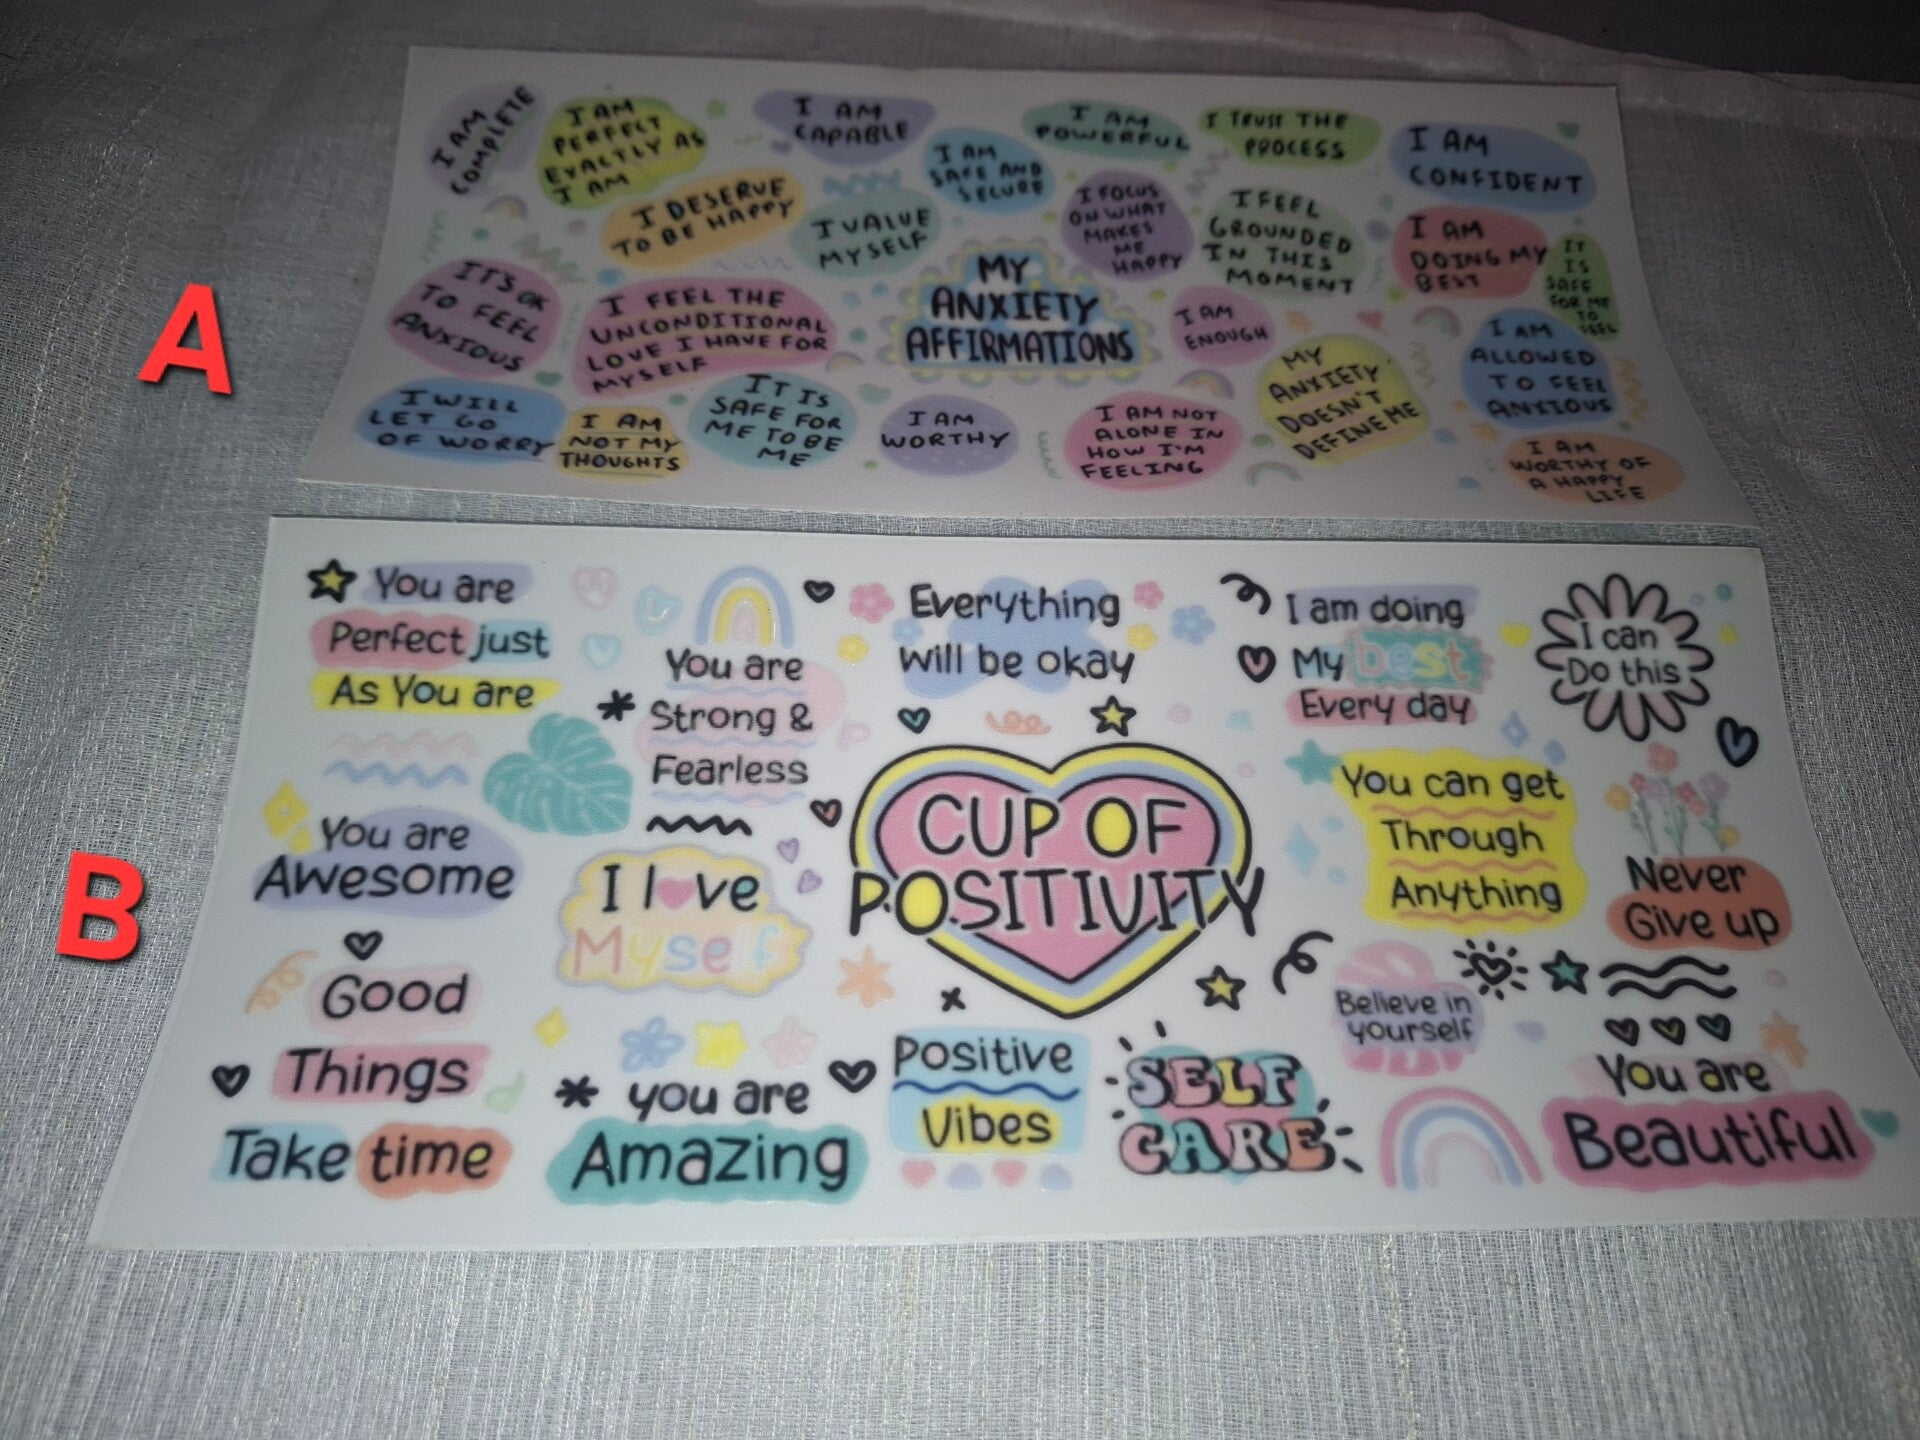 A
I AM
COMPLETE
I AM
PERFECT
EXACTLY AS
I AM
I AM
CAPABLE
I AM
SAFE AND
SECURE
I AM
POWERFUL
I TRUST THE
PROCESS
I AM
CONFIDENT
I DESERVE
TO BE HAPPY
I VALUE
MYSELF
I FOCUS
ON WHAT
MAKES
ME
HAPPY
I FEEL
GROUNDED
IN THIS
MOMENT
I AM
DOING MY
BEST
IT
IS
SAFE
FOR ME
TO
FEEL
IT'S OK
TO FEEL
ANXIOUS
I FEEL THE
UNCONDITIONAL
LOVE I HAVE FOR
MYSELF
MY
ANXIETY
AFFIRMATIONS
I AM
ENOUGH
MY
ANXIETY
DOESN'T
DEFINE ME
I AM
ALLOWED
TO FEEL
ANXIOUS
I WILL
LET GO
OF WORRY
I AM
NOT MY
THOUGHTS
IT IS
SAFE FOR
ME TO BE
ME
I AM
WORTHY
I AM NOT
ALONE IN
HOW I'M
FEELING
I AM
WORTHY OF
A HAPPY
LIFE
B
You are
Perfect just
As You are
You are
Strong &
Fearless
Everything
will be okay
I am doing
My best
Every day
I can
Do this
You are
Awesome
I love
Myself
CUP OF
POSITIVITY
You can get
Through
Anything
Never
Give up
Good
Things
Take time
you are
Amazing
Positive
Vibes
SELF
CARE
Believe in
yourself
You are
Beautiful